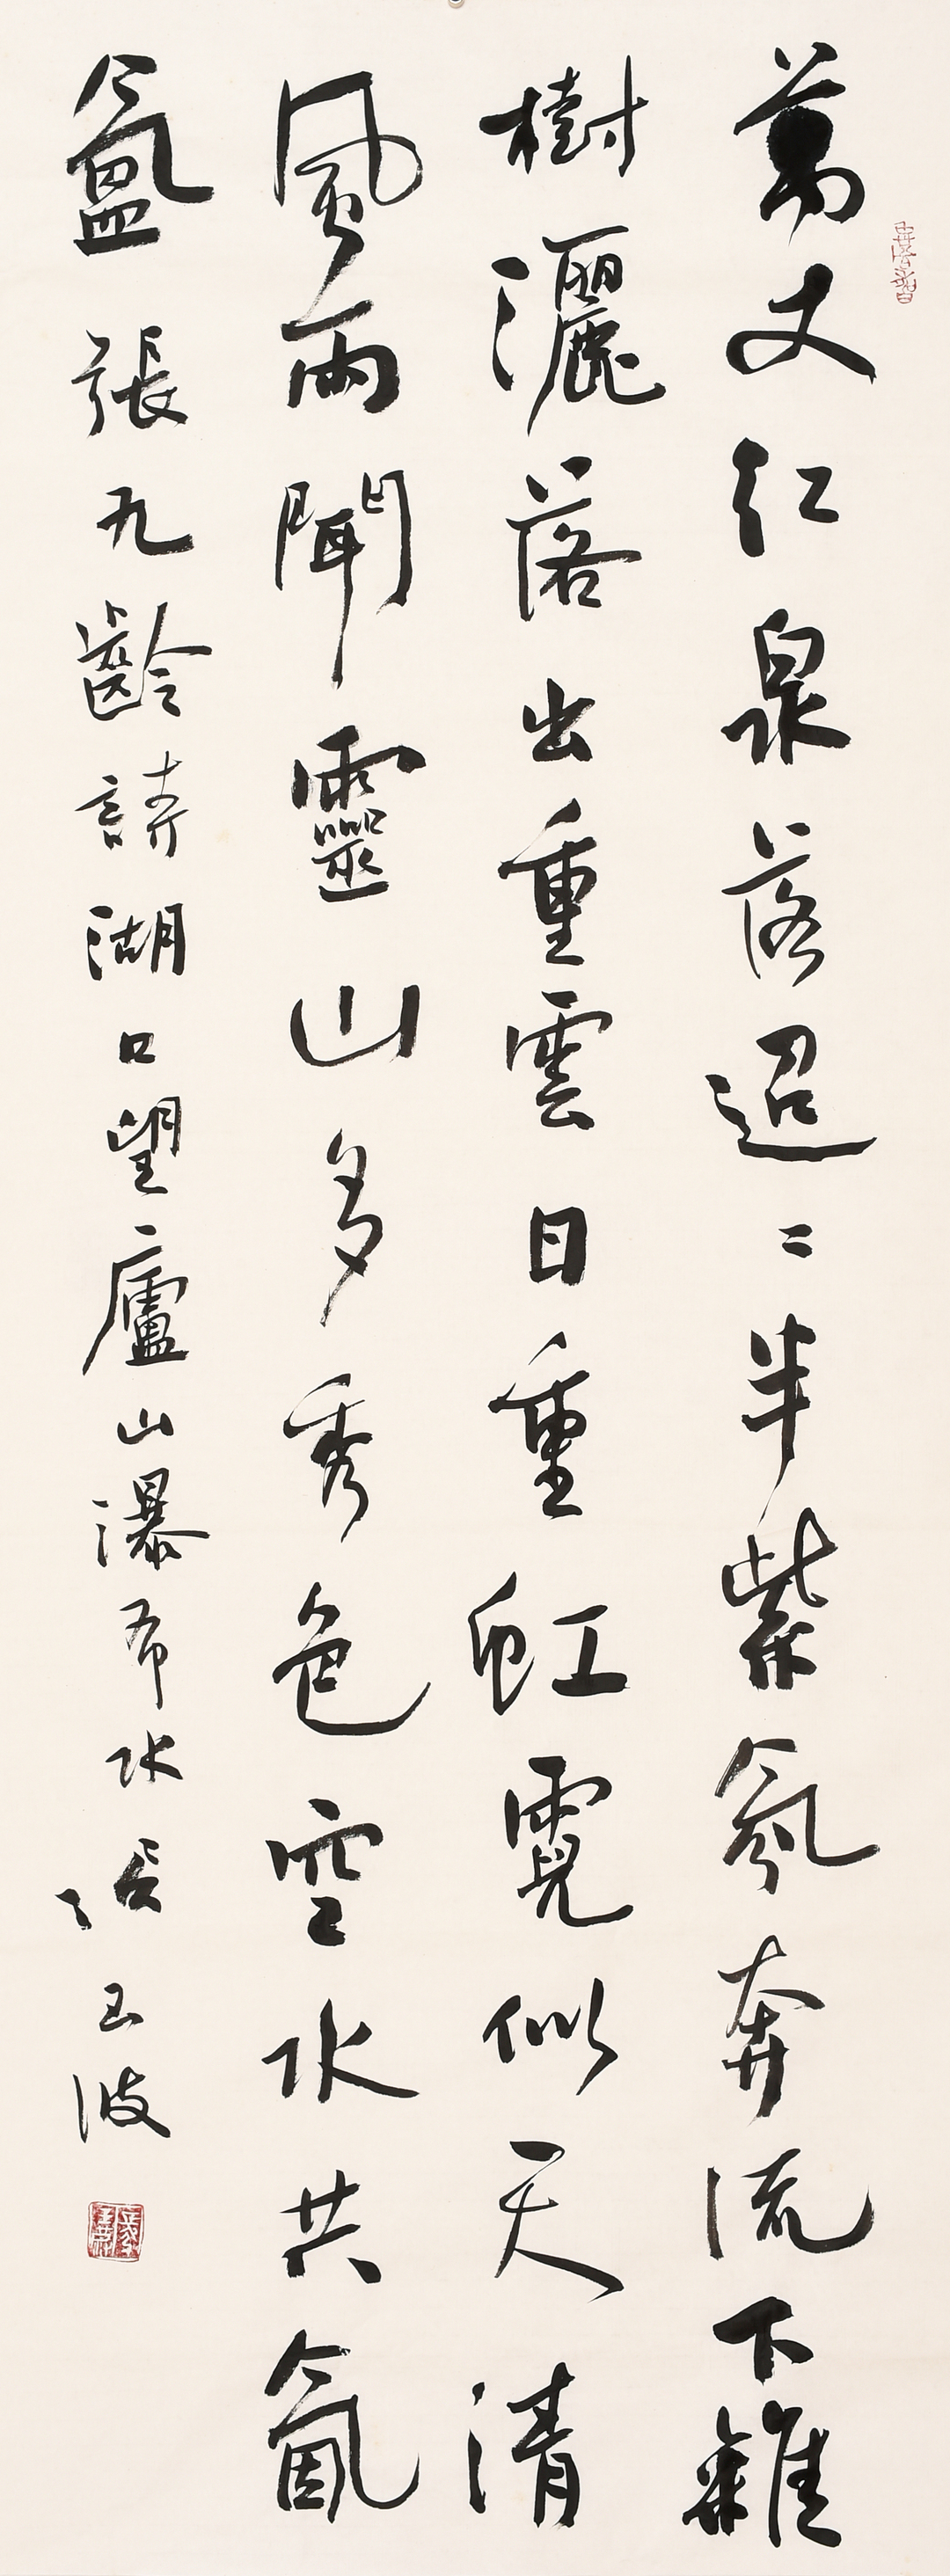 萬丈紅泉落迢〻半紫氛奔流下雜
樹灑落出重雲日重虹霓似天清
風雨聞靈山多秀色空水共氤
氳張九齡詩湖口望廬山瀑布水
玉波